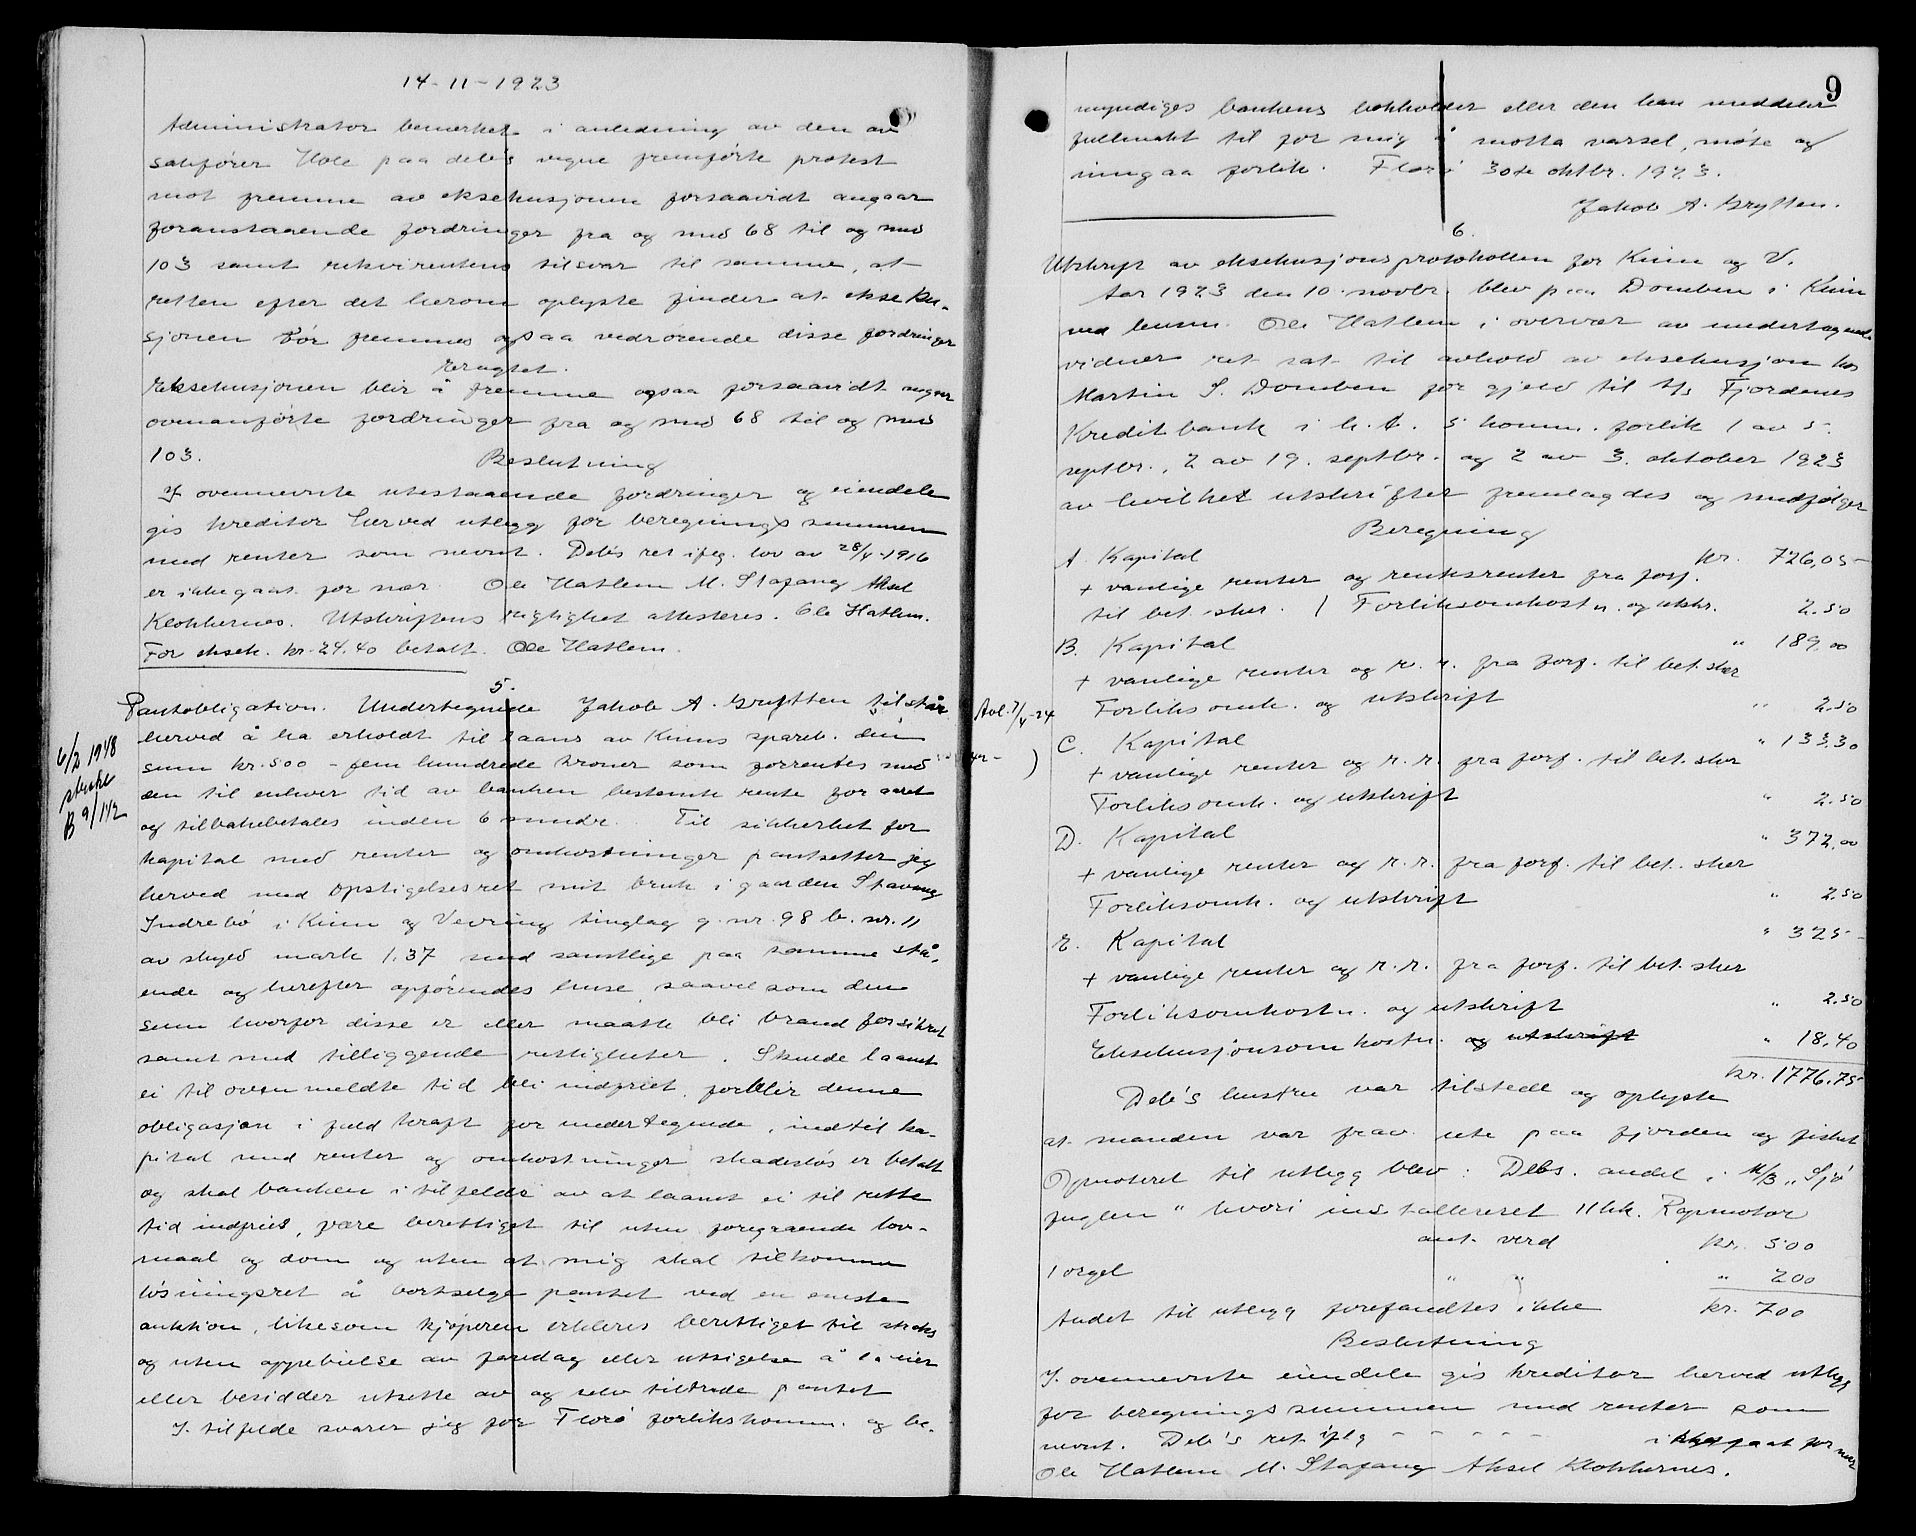 14-11-1923
Administrator bemerket i anledning av den av
sakfører Hole paa deb's vegne fremførte protest
mot fremme av eksekusjonen forsaavidt angaar
foranstaaende fordringer fra og med 68 til og med
103 samt rekvirentens tilsvar til samme, at
retten efter det herom oplyste finder at ekseku-
sjonen bør fremmes ogsaa vedrørende disse fordringer
Eragtet.
Eksekusjonen blir å fremme ogsaa forsaavidt angaar
ovenanførte fordringer fra og med 68 til og med
103.
Beslutning
I ovennevnte utestaaende fordringer og eiendele
gis kreditor herved utlegg for beregningssummen
med renter som nevnt. Deb's ret ifg. lov av 28/4-1916
er ikke gaat for nær. Ole Hatlem M. Stafang Aksel
Klokkernes. Utskriftens rigtighet attesteres. Ole Hatlem.
For eksek. kr. 24.40 betalt. Ole Hatlem.
5.
Pantobligation. Undertegnede Jakob A. Grytten tilstår
herved å ha erholdt til laans av Kinns spareb. den
sum kr. 500 - fem hundrede kroner som forrentes med
den til enhver tid av banken bestemte rente for aaret
og tilbakebetales inden 6 mndr. Til sikkerhet for
kapital med renter og omkostninger pantsetter jeg
herved med opstigelsesret mit bruk i gaarden Stavang
Indrebø i Kinn og Vevring tinglag g.nr. 98 b.nr. 11
av skyld mark 1.37 med samtlige paa samme stå-
ende og herefter opførendes huse, saavel som den
sum hvorfor disse er eller maatte bli brandforsikret
samt med tilliggende rettigheter. Skulde laanet
ei til ovenmeldte tid bli indfriet, forblir denne
obligasjon i fuld kraft for undertegnede, indtil ka-
pital med renter og omkostninger skadesløs er betalt
og skal banken i tilfelde av at laanet ei til rette
tid indfries, være berettiget til uten foregaaende lov-
maal og dom og uten at mig skal tilkomme
løsningsret å bortselge pantet ved en eneste
auktion, likesom kjøperen erklæres berettiget til straks
og uten oppebielse av faredag eller utsigelse å la eier
eller besidder utsette av og selv tiltræde pantet
I tilfelde svarer jeg for Florø forlikskomm. og be-
6/2 1948
slettet
B 9/112
9
myndiges bankens bokholder eller den han meddeler
fullmakt til for mig å motta varsel, møte og
inngaa forlik. Florø 30te oktbr. 1923.
Jakob A. Grytten.
6.
Utskrift av eksekusjonsprotokollen for Kinn og V.
Aar 1923 den 10. novbr. blev paa Domben i Kinn
ved lensm. Ole Hatlem i overvær av undertegnede
vidner ret sat til avhold av eksekusjon hos
Martin S. Domben for gjeld til A/s Fjordenes
Kreditbank i h. t. 5 komm. forlik 1 av 5.
septbr., 2 av 19. septbr. og 2 av 3. oktober 1923
av hvilket utskrifter fremlagdes og medfølger
Beregning
A. Kapital kr. 726,05-
+ vanlige renter og rentesrenter fra forf.
til bet. sker. / Forliksomkostn. og utskr. 2.50
B. Kapital " 189,00
+ vanlige renter og r. r. fra forf. til bet. sker
Forliksomk. og utskrift " 2.50
Avl. 7/4-24
C. Kapital " 133.30
+ vanlige renter og r. r. fra forf. til bet. sker
Forliksomk. og utskrift " 2.50
D. Kapital " 372,00
+ vanlige renter og r. r. fra forf. til bet. sker
Forliksomk. og utskrift " 2.50
E. Kapital " 325-
+ vanlige renter og r. r. fra forf. til bet. sker
Forliksomkostn. og utskrift " 2.50
Eksekusjonsomkostn. og utskrift " 18.40
kr. 1776.75
Deb's hustru var tilstede og oplyste
at manden var frav. ute paa fjorden og fisket
Opnoteret til utlegg blev: Debs. andel i M/B "Sjø
fuglen" hvori installeret 11 hk. Rapmotor
ant. verd kr. 500
1 orgel " " " 200
Andet til utlegg forefandtes ikke kr. 700
Beslutning
I ovennevnte eiendele gis kreditor herved utlegg
for beregningssummen med renter som
nevnt. Deb's ret iflg - - - - - ikke gaat for nær
Ole Hatlem M. Stafang Aksel Klokkernes.